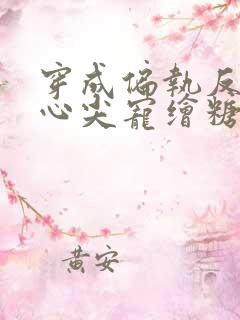 穿成偏執反
心尖寵繪糖
黄安